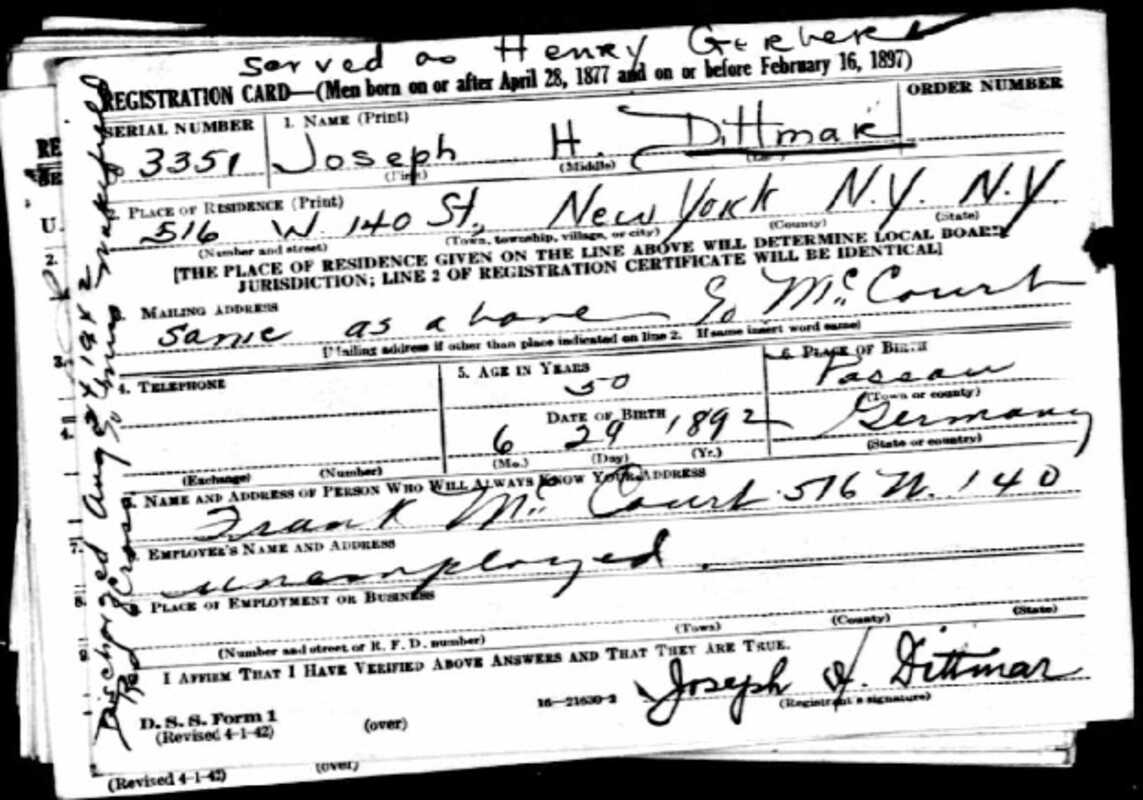 served as Henry Gerber
REGISTRATION CARD—(Men born on or after April 28, 1877 and on or before February 16, 1897)
SERIAL NUMBER
1. NAME (Print)
ORDER NUMBER
3351
Joseph H. Dittmar
(First) (Middle) (Last)
2. PLACE OF RESIDENCE (Print)
516 W. 140 St., New York N.Y. N.Y.
(Number and street) (Town, township, village, or city) (County) (State)
[THE PLACE OF RESIDENCE GIVEN ON THE LINE ABOVE WILL DETERMINE LOCAL BOARD
JURISDICTION; LINE 2 OF REGISTRATION CERTIFICATE WILL BE IDENTICAL]
MAILING ADDRESS
same as above c/o McCourt
[Mailing address if other than place indicated on line 2. If same insert word same]
4. TELEPHONE
5. AGE IN YEARS
6. PLACE OF BIRTH
50
Passau
(Town or county)
DATE OF BIRTH
6 29 1892
Germany
(Mo.) (Day) (Yr.)
(State or country)
(Exchange) (Number)
NAME AND ADDRESS OF PERSON WHO WILL ALWAYS KNOW YOUR ADDRESS
Frank McCourt 516 W. 140
EMPLOYER'S NAME AND ADDRESS
unemployed.
PLACE OF EMPLOYMENT OR BUSINESS
(Number and street or R. F. D. number) (Town) (County) (State)
I AFFIRM THAT I HAVE VERIFIED ABOVE ANSWERS AND THAT THEY ARE TRUE.
Joseph H. Dittmar
D. S. S. Form 1
(Revised 4-1-42)
(over)
16—21630-2
(Registrant's signature)
(Revised 4-1-42)
(over)
Discharged Aug 24 1942
Red Cross